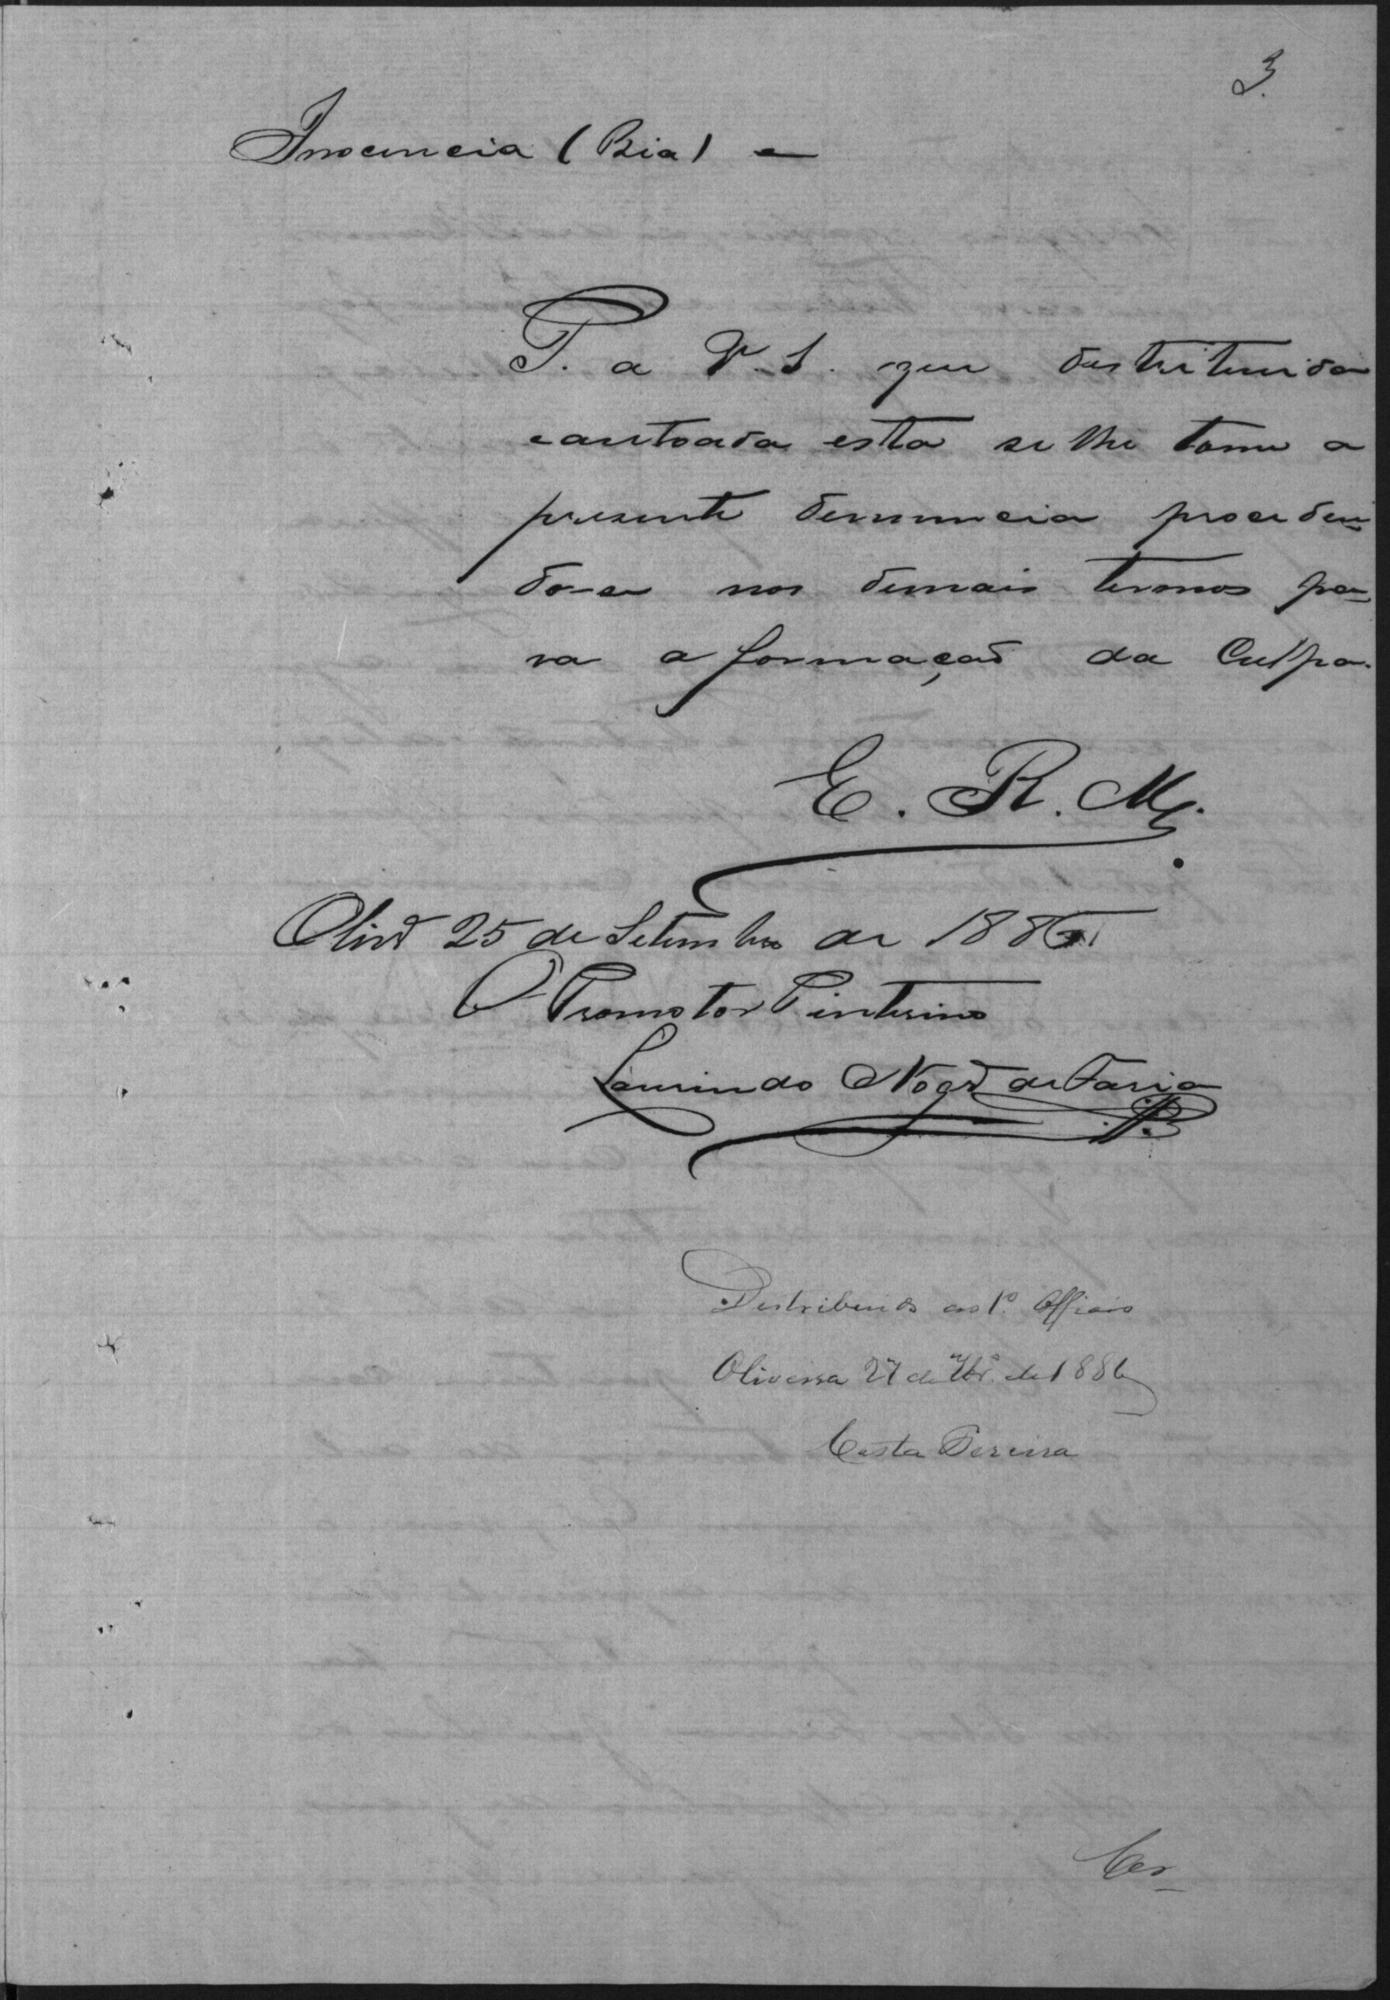 3.
Inocencia (Bia) e
P. a V. S. que destribuida
e autoada esta se lhe tome a
presente denuncia proceden-
do-se nos demais termos pa-
ra a formação da Culpa.
E. R. M.
Olivª 25 de Setembro de 1886
O Promotor interino
Laurindo Nogª de Faria
Destribuida ao 1º Officio
Oliveira 27 de 7brº de 1886
Costa Pereira